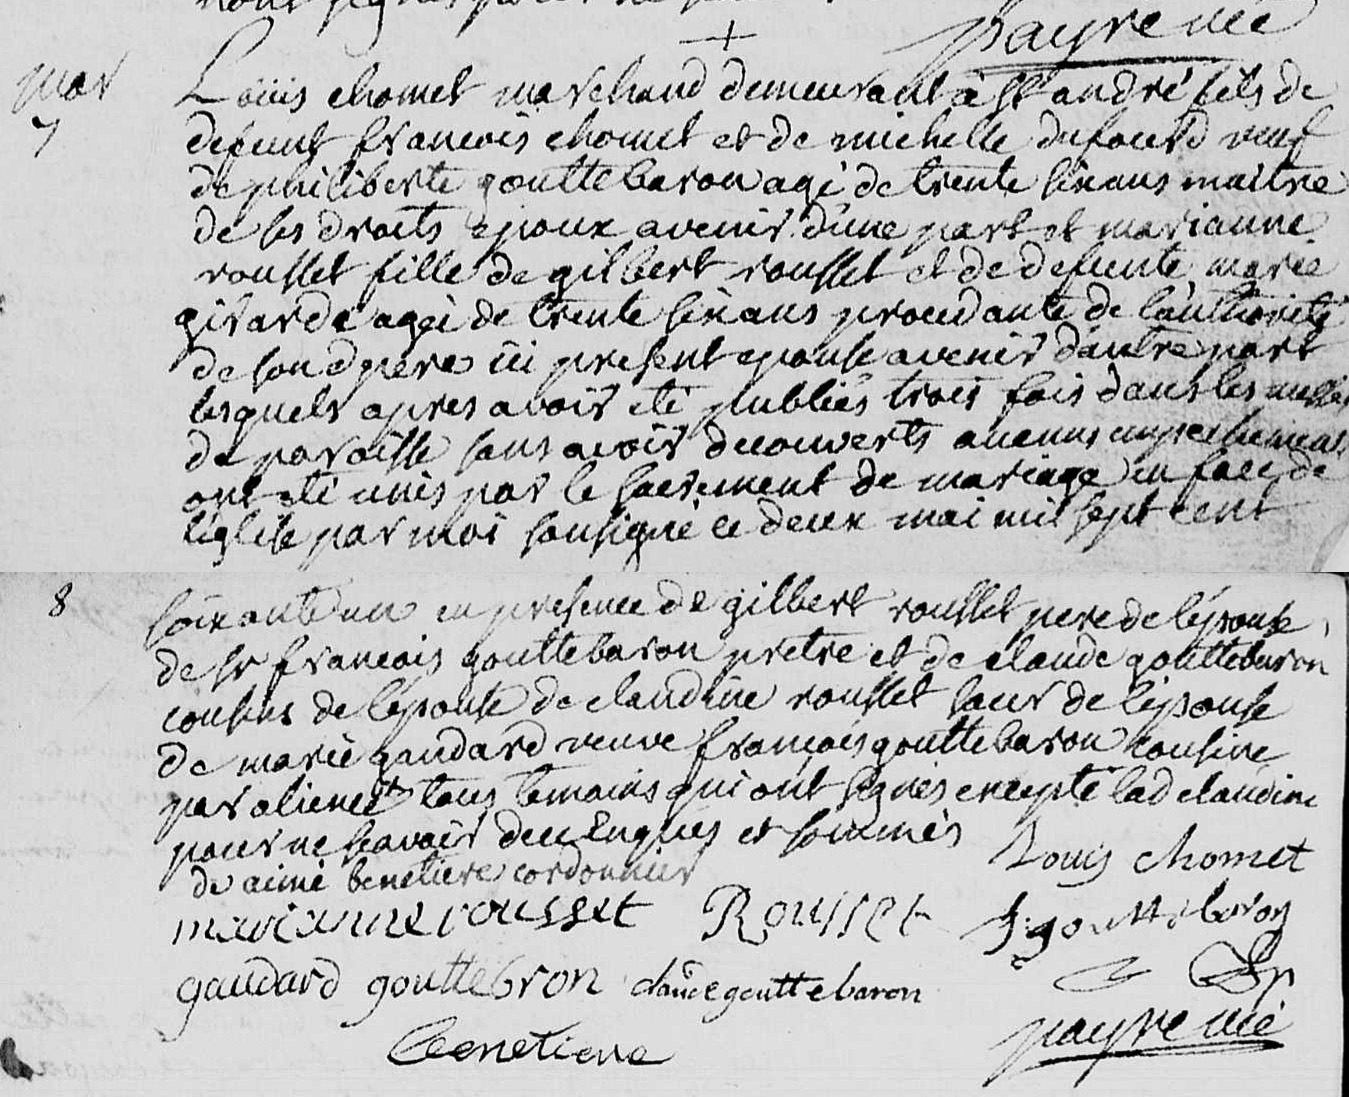 payre vic
mar
7
Louis chomet marchand demeurant à st andré fils de
defunt francois chomet et de michelle dufourd veuf
de philiberte gouttebaron agé de trente six ans maitre
de ses droits epoux avenir d'une part et marianne
rousset fille de gilbert rousset et de defunte marie
girarde ageé de trente six ans procedante de l'authorité
de son d pere ici present epouse avenir d'autre part
lesquels apres avoir eté publiés trois fois dans les messes
de paroisse sans avoir decouverts aucuns empechemens
ont eté unis par le sacrement de mariage en face de
l'eglise par moi soussigné ce deux mai mil sept cent
8
soixante un en presence de gilbert rousset pere de l'epouse
de sr francois gouttebaron pretre et de claude gouttebaron
cousins de l'epouse de claudine rousset soeur de l'epouse
de marie gaudard veuve françois gouttebaron cousine
par alience tous temoins qui ont signés excepté lad claudine
pour ne scavoir de ce enquis et sommés
de aimé benetiere cordonnier
Louis chomet
marianne rousset Rousset f. gouttebaron
gaudard gouttebron claude gouttebaron
benetiere
payre vic